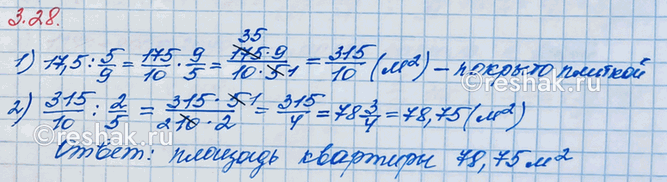 3.28.
1) 17,5 : 5/9 = 175/10 · 9/5 = 175 · 9/10 · 5 35 1 = 315/10 (м²) – покрыто плиткой
2) 315/10 : 2/5 = 315 · 5/10 · 2 1 2 = 315/4 = 78 3/4 = 78,75 (м²)
Ответ: площадь квартиры 78,75 м²
©reshak.ru